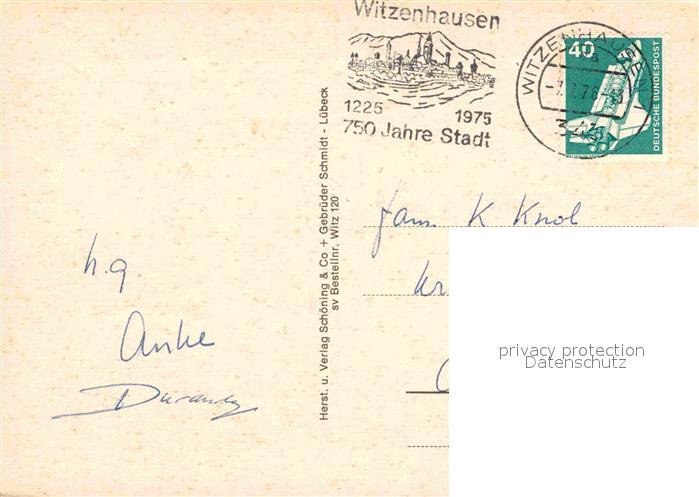 Witzenhausen
1225 1975
750 Jahre Stadt
WITZENHAUSEN
40
DEUTSCHE BUNDESPOST
Herst. u. Verlag Schöning & Co + Gebrüder Schmidt - Lübeck
sv Bestellnr. Witz 120
Fam. K Knol
kr
h.g.
Anke
privacy protection
Datenschutz